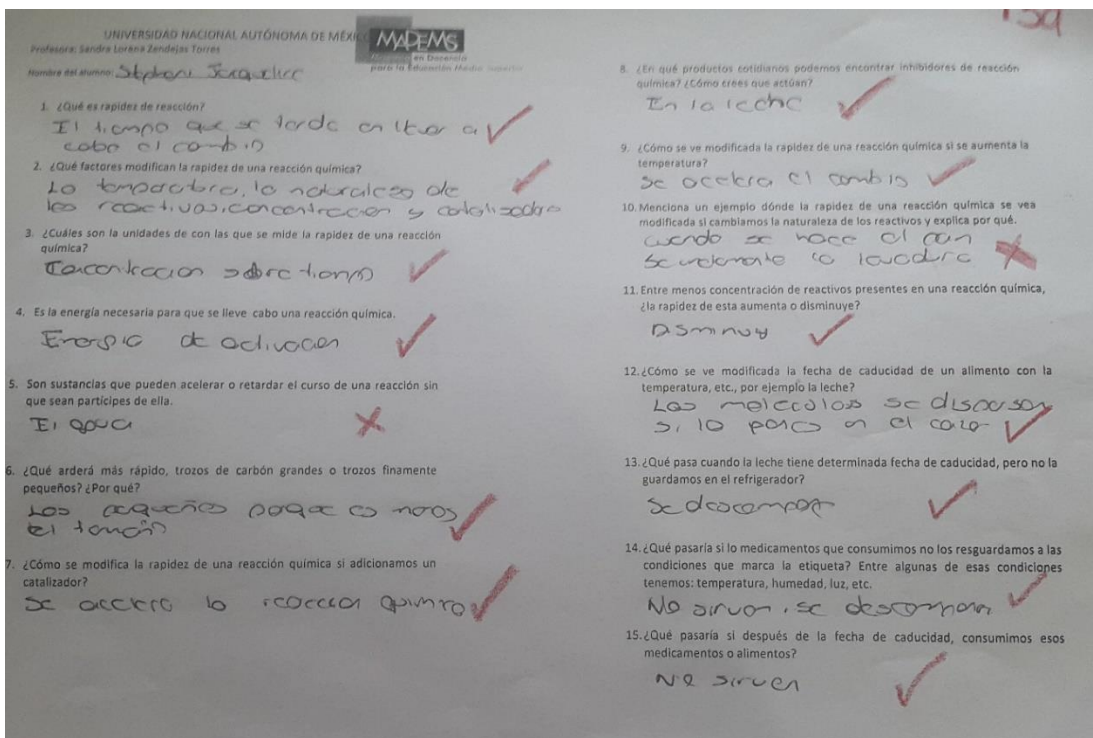 UNIVERSIDAD NACIONAL AUTÓNOMA DE MÉXI
MADEMS
en Docencia
para la Educación Media Superior
Profesora: Sandra Lorena Zendejas Torres
Nombre del alumno: Stephani
1. ¿Qué es rapidez de reacción?
El tiempo que se tarda en llevar a
cabo el cambio
2. ¿Qué factores modifican la rapidez de una reacción química?
La temperatura, la naturaleza de
los reactivos, concentración y catalizadore
3. ¿Cuáles son la unidades de con las que se mide la rapidez de una reacción
química?
Concentracion sobre tiempo
4. Es la energía necesaria para que se lleve cabo una reacción química.
Energia de activacion
5. Son sustancias que pueden acelerar o retardar el curso de una reacción sin
que sean partícipes de ella.
El agua
6. ¿Qué arderá más rápido, trozos de carbón grandes o trozos finamente
pequeños? ¿Por qué?
Los pequeños porque es menos
el tamaño
7. ¿Cómo se modifica la rapidez de una reacción química si adicionamos un
catalizador?
Se acelera la reaccion quimica
8. ¿En qué productos cotidianos podemos encontrar inhibidores de reacción
química? ¿Cómo crees que actúan?
En la leche
9. ¿Cómo se ve modificada la rapidez de una reacción química si se aumenta la
temperatura?
Se acelera el cambio
10. Menciona un ejemplo dónde la rapidez de una reacción química se vea
modificada si cambiamos la naturaleza de los reactivos y explica por qué.
Cuando se hace el pan
la levadura
11. Entre menos concentración de reactivos presentes en una reacción química,
¿la rapidez de esta aumenta o disminuye?
Disminuy
12. ¿Cómo se ve modificada la fecha de caducidad de un alimento con la
temperatura, etc., por ejemplo la leche?
Las moleculas se dispersan
si lo pones en el calor
13. ¿Qué pasa cuando la leche tiene determinada fecha de caducidad, pero no la
guardamos en el refrigerador?
Se descompone
14. ¿Qué pasaría si lo medicamentos que consumimos no los resguardamos a las
condiciones que marca la etiqueta? Entre algunas de esas condiciones
tenemos: temperatura, humedad, luz, etc.
No sirven, se descomponen
15. ¿Qué pasaría si después de la fecha de caducidad, consumimos esos
medicamentos o alimentos?
No sirven